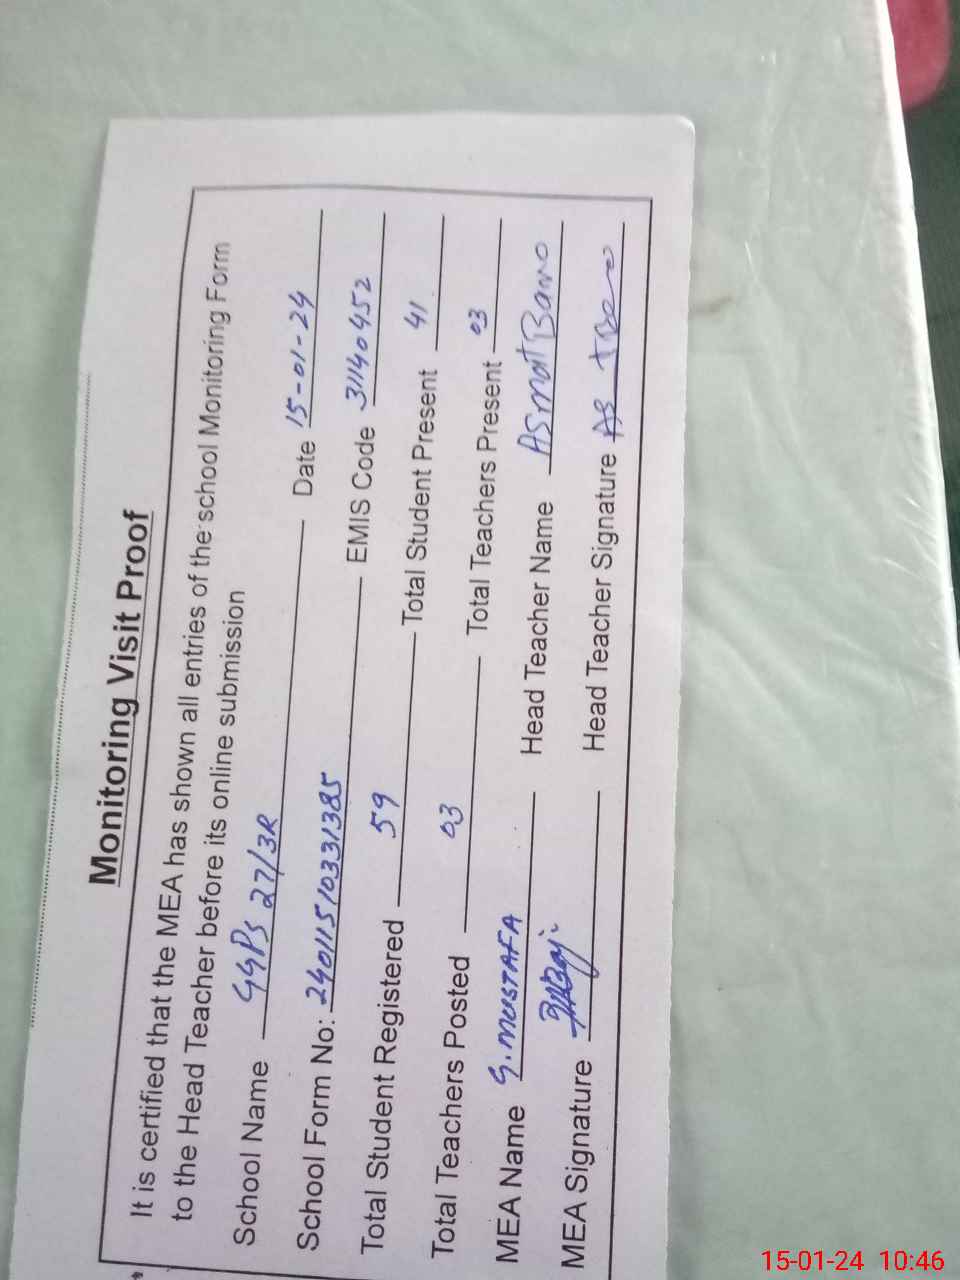 Monitoring Visit Proof
It is certified that the MEA has shown all entries of the school Monitoring Form
to the Head Teacher before its online submission
School Name GGPS 27/3R Date 15-01-24
School Form No: 240115103331385 EMIS Code 31140452
Total Student Registered 59 Total Student Present 41
Total Teachers Posted 03 Total Teachers Present 03
MEA Name G. MUSTAFA Head Teacher Name Asmat Bano
MEA Signature Head Teacher Signature
15-01-24 10:46